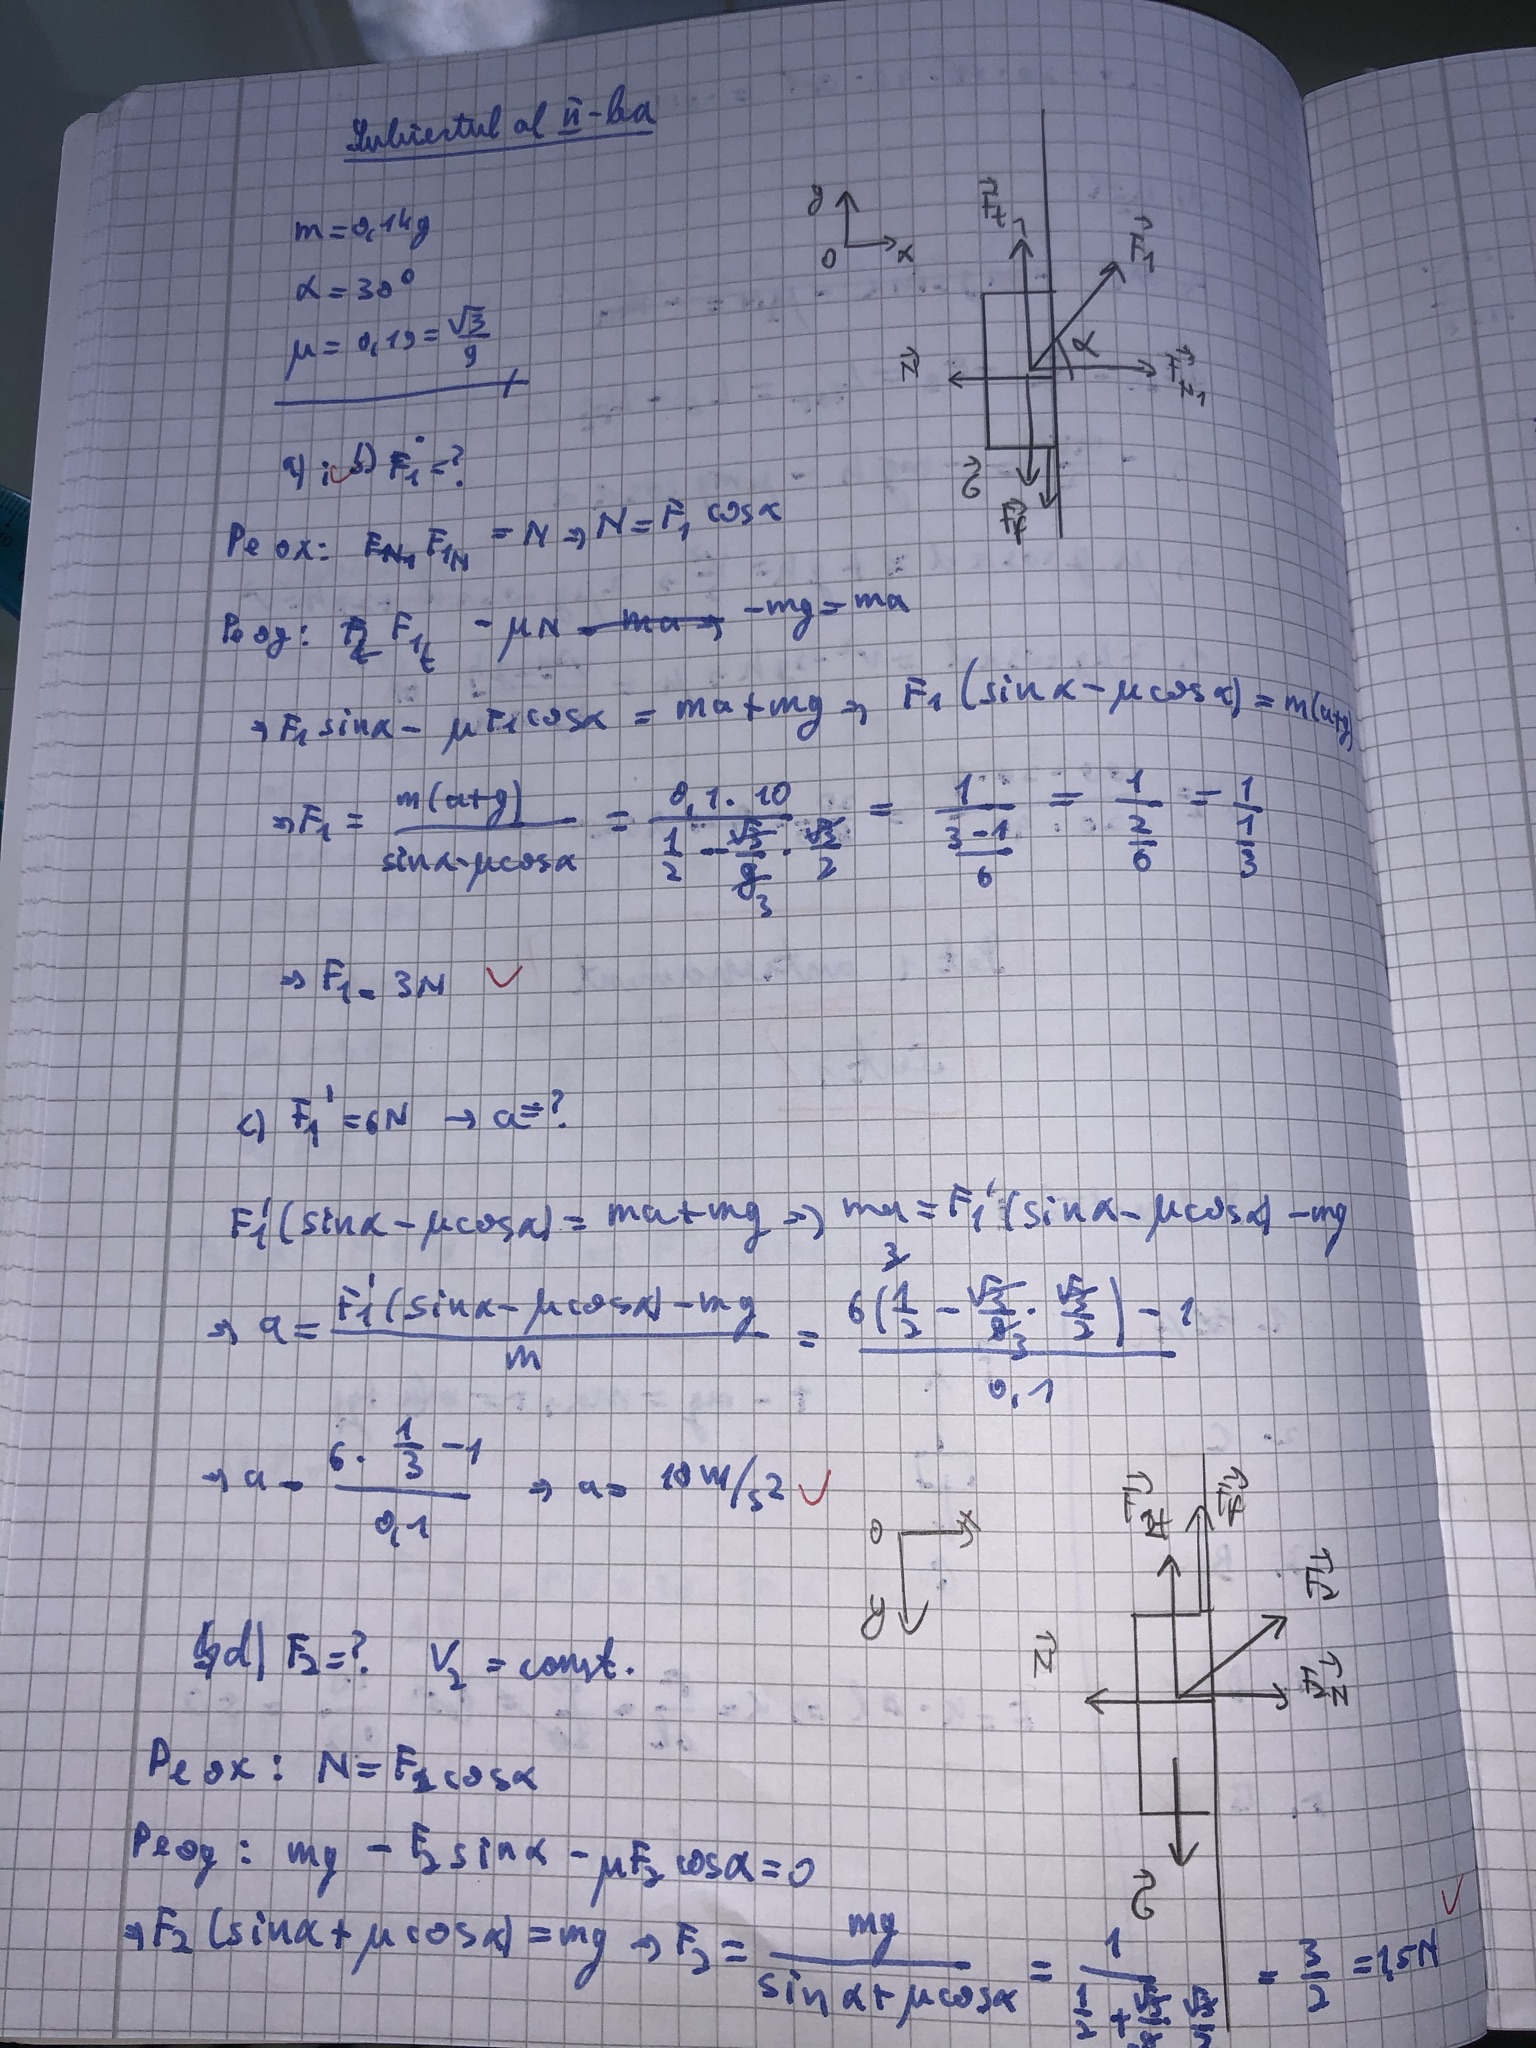 Subiectul al II-lea
m = 0,1kg
α = 30°
μ = 0,19 = √3/9
y
O x
F⃗t F⃗1
N⃗ α F⃗N1
G⃗
F⃗f
a) ; b) F1 = ?
Pe ox: F1N = N ⇒ N = F1 cosα
Pe oy: F1t - μN - mg = ma
⇒ F1 sinα - μF1cosα = ma+mg ⇒ F1 (sinα - μcosα) = m(a+g)
⇒ F1 = m(a+g)/(sinα-μcosα) = (0,1·10)/(1/2 - √3/9 · √3/2) = 1/((3-1)/6) = 1/(2/6) = 1/(1/3)
3
⇒ F1 = 3N
c) F1' = 6N → a = ?
F1'(sinα - μcosα) = ma+mg ⇒ ma = F1'(sinα - μcosα) - mg
⇒ a = (F1'(sinα - μcosα) - mg)/m = (6(1/2 - √3/9 · √3/2) - 1)/0,1
3
⇒ a = (6·1/3 - 1)/0,1 ⇒ a = 10 m/s2
O x
y
F⃗2t F⃗f
F⃗2
N⃗ F⃗2N
G⃗
d) F2 = ? V2 = const.
Pe ox: N = F2 cosα
Pe oy: mg - F2 sinα - μF2 cosα = 0
⇒ F2 (sinα + μcosα) = mg ⇒ F2 = mg/(sinα + μcosα) = 1/(1/2 + √3/9 · √3/2) = 3/2 = 1,5N